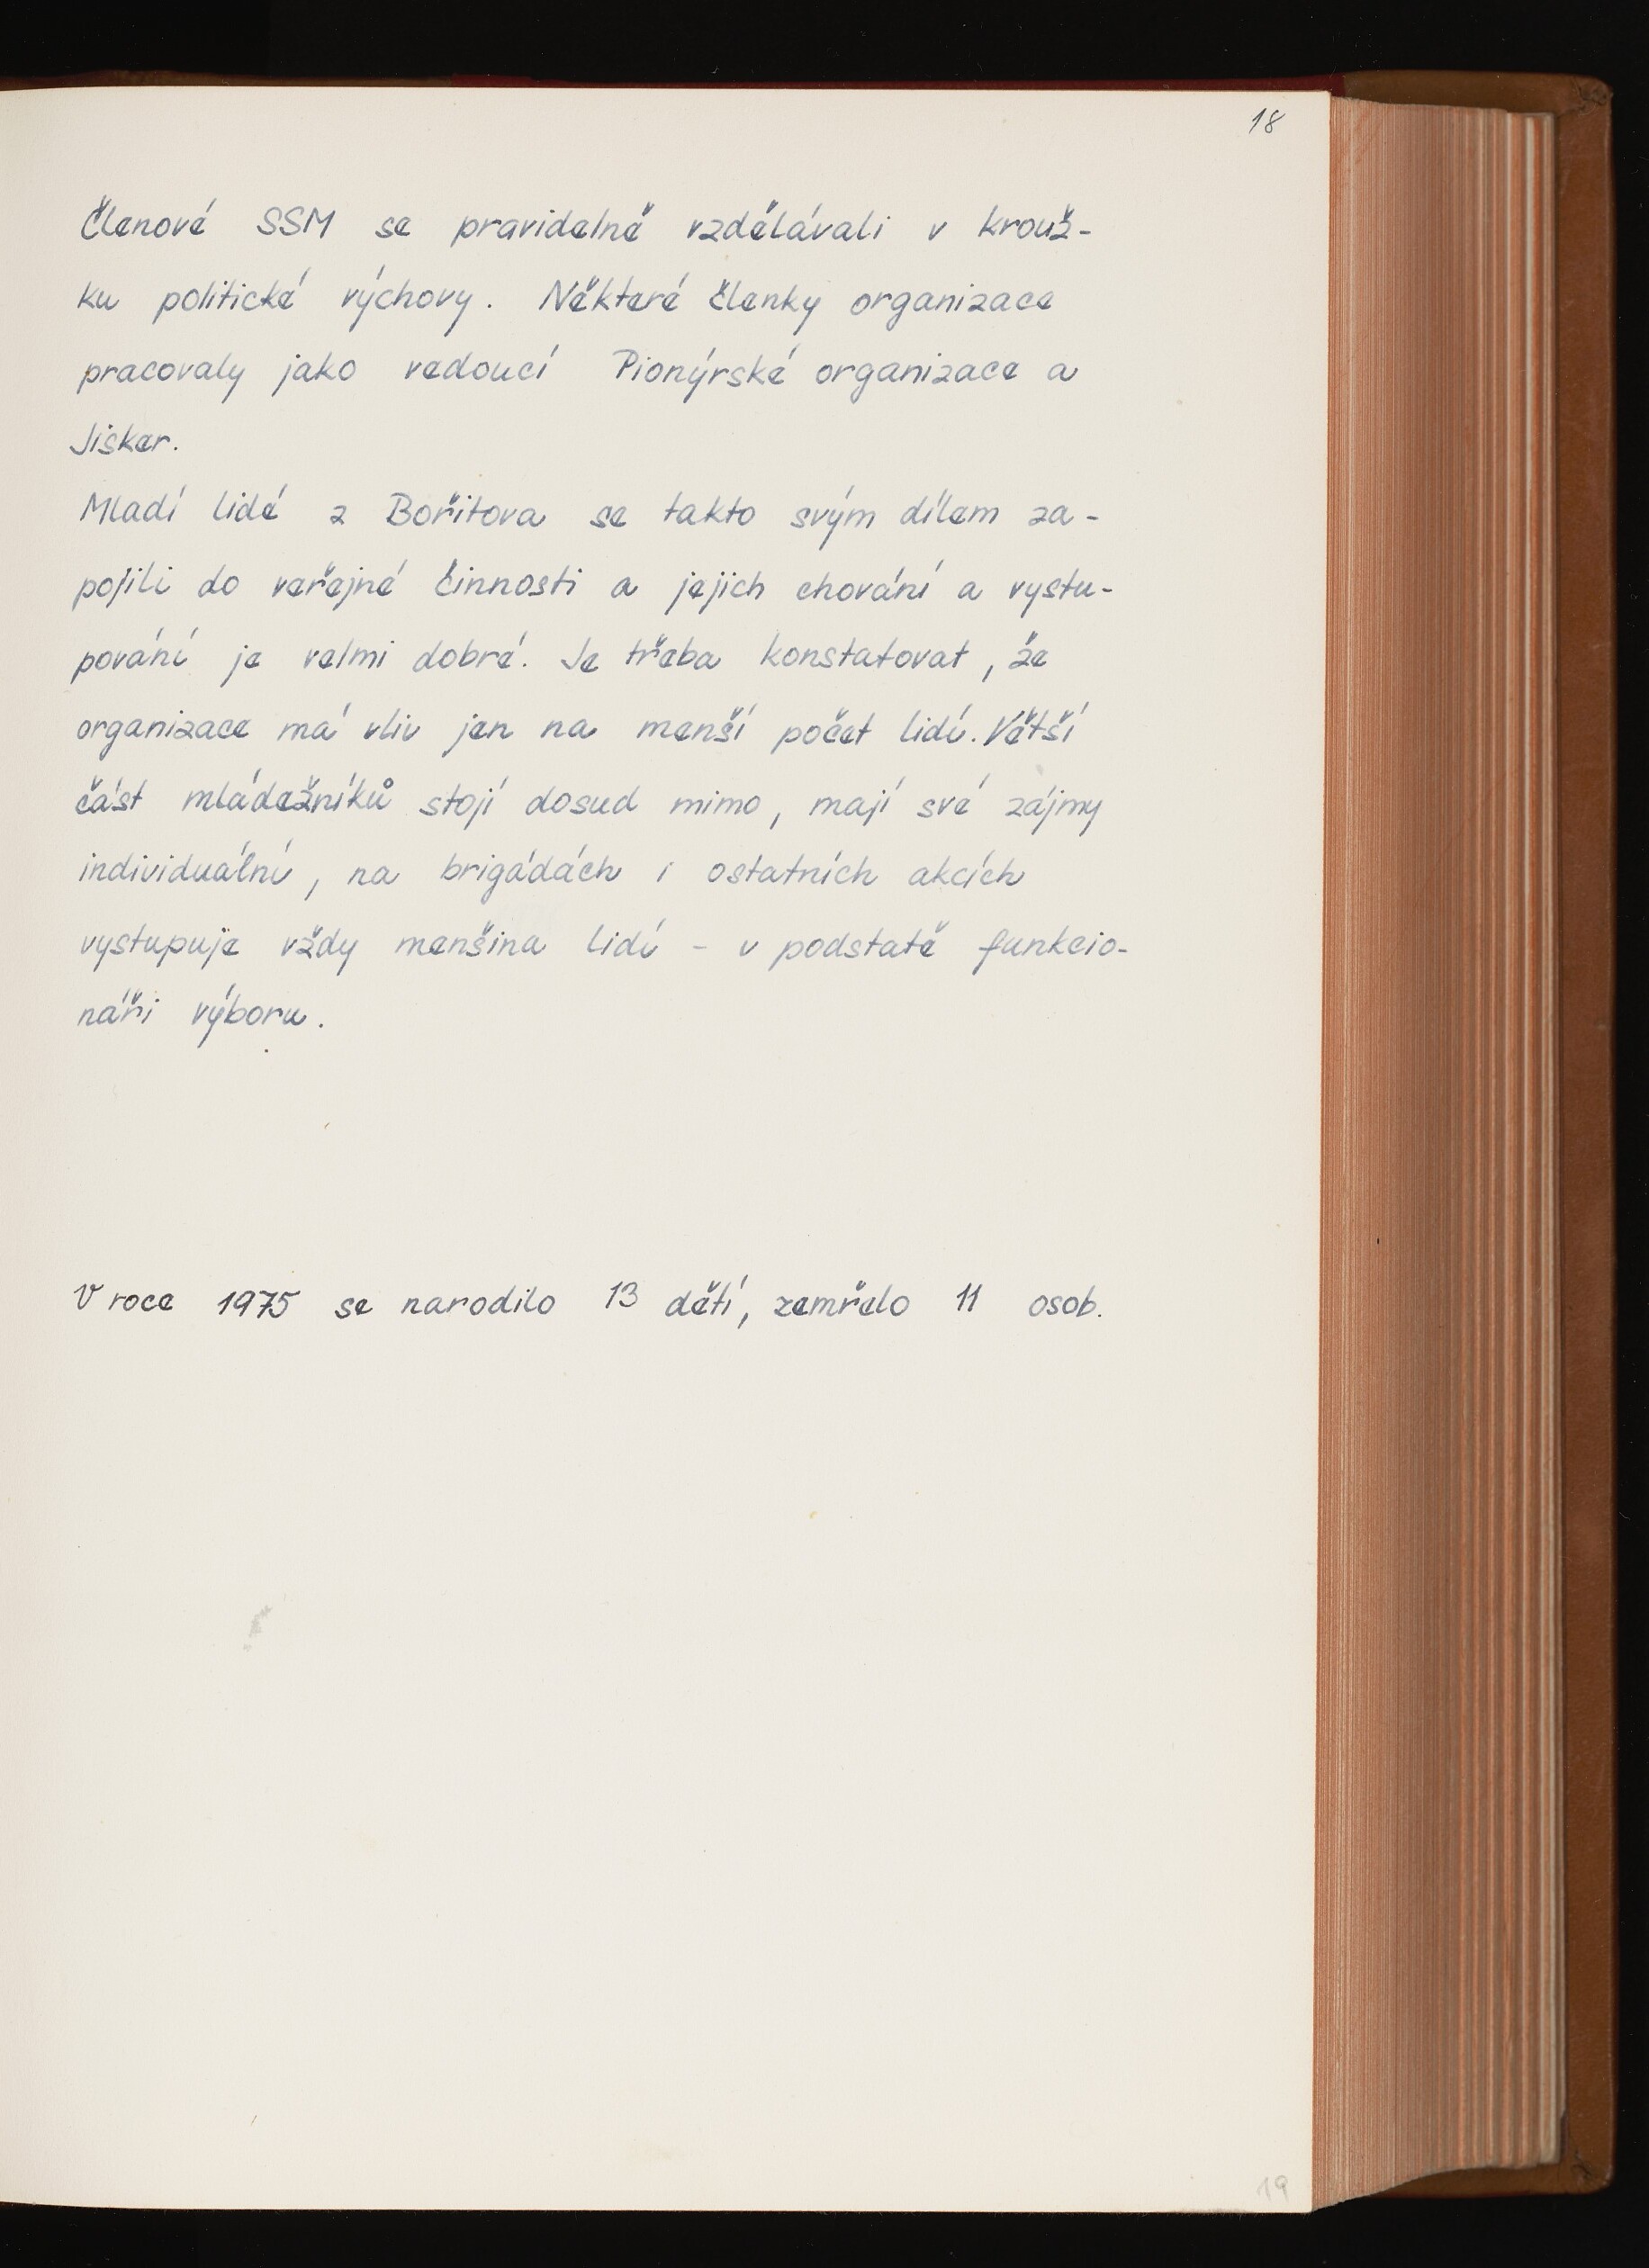 18
Členové SSM se pravidelně vzdělávali v krouž-
ku politické výchovy. Některé členky organizace
pracovaly jako vedoucí Pionýrské organizace a
Jisker.
Mladí lidé z Bořitova se takto svým dílem za-
pojili do veřejné činnosti a jejich chování a vystu-
pování je velmi dobré. Je třeba konstatovat, že
organizace má vliv jen na menší počet lidí. Větší
část mládežníků stojí dosud mimo, mají své zájmy
individuální, na brigádách i ostatních akcích
vystupuje vždy menšina lidí - v podstatě funkcio-
náři výboru.
V roce 1975 se narodilo 13 dětí, zemřelo 11 osob.
19